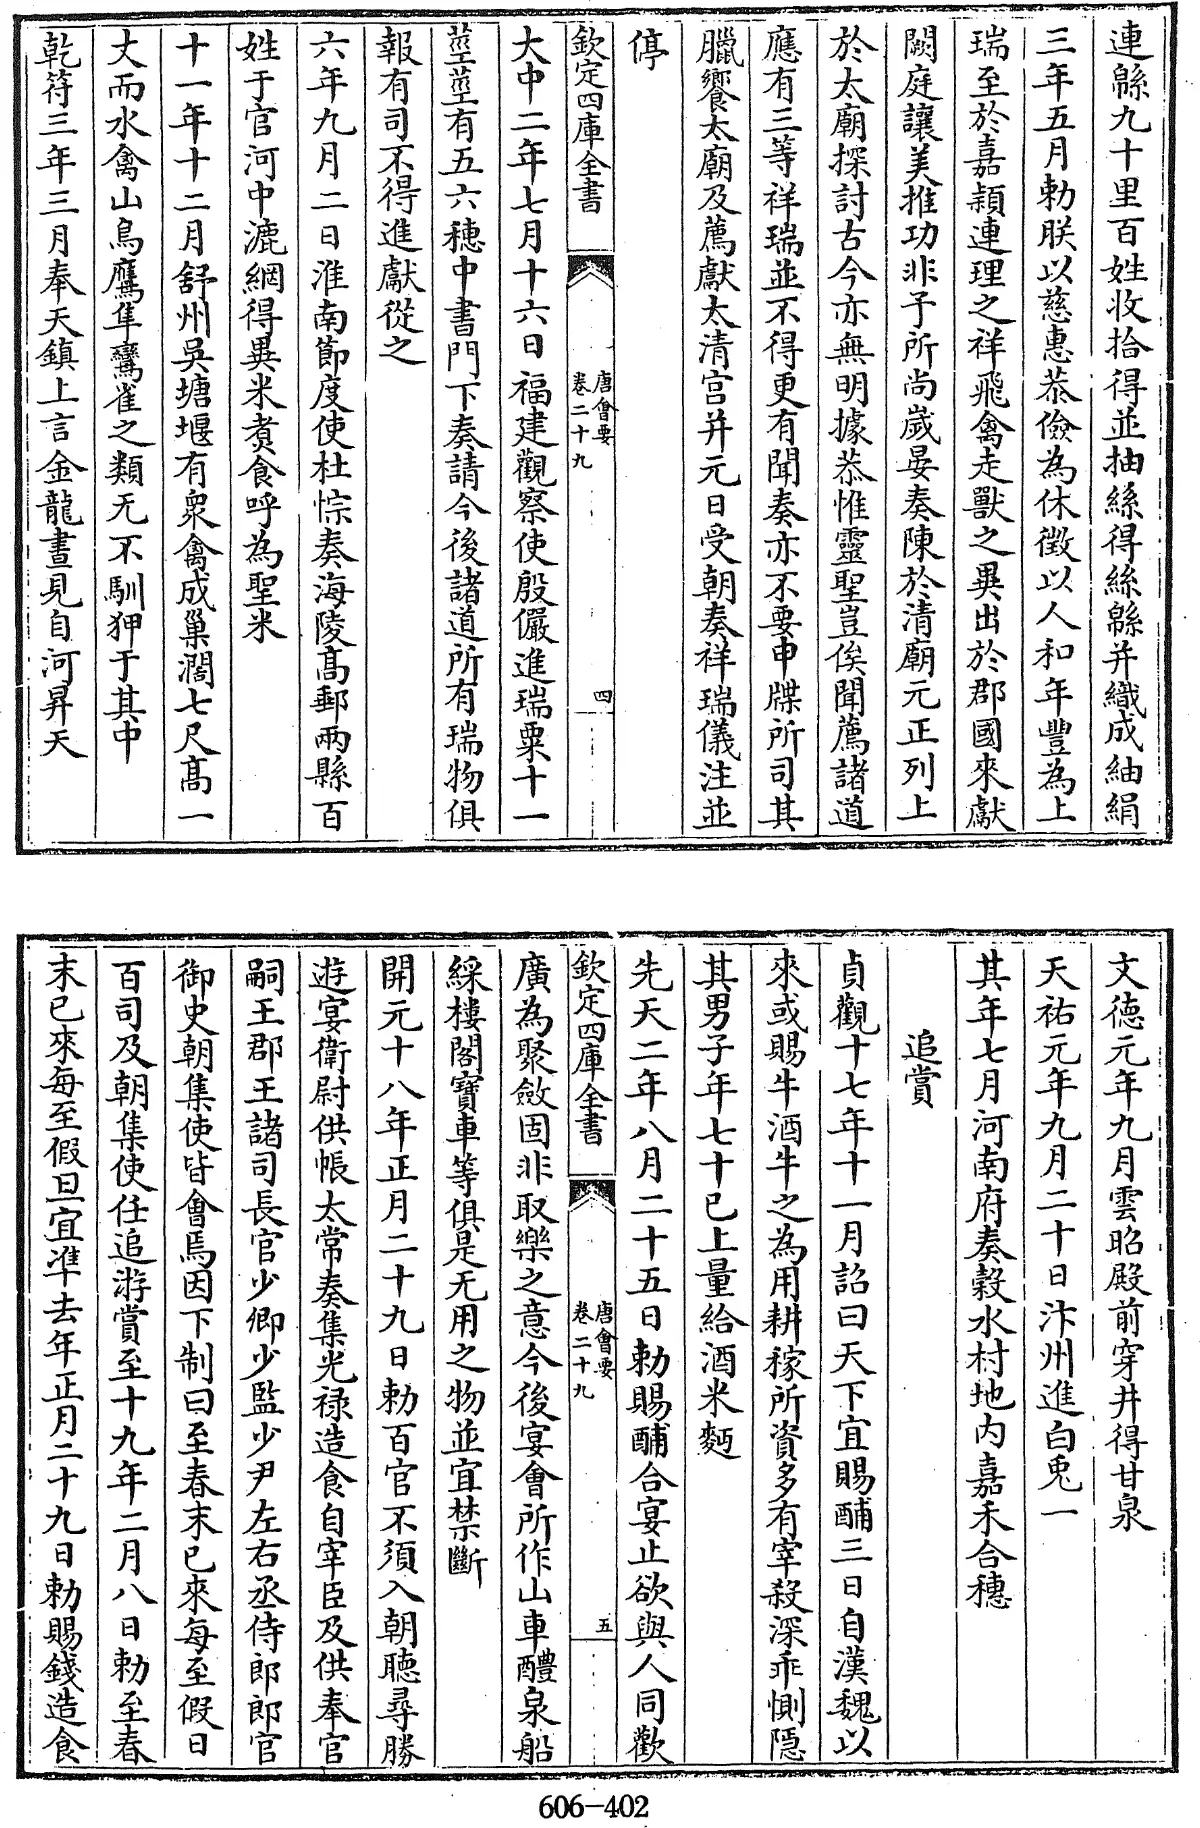 連緜九十里百姓收拾得並抽絲得絲緜并織成紬絹
三年五月勅朕以慈惠恭儉為休徵以人和年豐為上
瑞至於嘉穎連理之祥飛禽走獸之異出於郡國來獻
闕庭讓美推功非予所尚歲晏奏陳於清廟元正列上
於太廟探討古今亦無明據恭惟靈聖豈俟聞薦諸道
應有三等祥瑞並不得更有聞奏亦不要申牒所司其
臘饗太廟及薦獻太清宮并元日受朝奏祥瑞儀注並
停
欽定四庫全書
唐會要
卷二十九
四
大中二年七月十六日福建觀察使殷儼進瑞粟十一
莖莖有五六穗中書門下奏請今後諸道所有瑞物俱
報有司不得進獻從之
六年九月二日淮南節度使杜悰奏海陵髙郵兩縣百
姓于官河中漉網得異米煑食呼為聖米
十一年十二月舒州吳塘堰有衆禽成巢濶七尺髙一
丈而水禽山鳥鷹隼鸞雀之類无不馴狎于其中
乾符三年三月奉天鎮上言金龍晝見自河昇天
文德元年九月雲昭殿前穿井得甘泉
天祐元年九月二十日汴州進白兎一
其年七月河南府奏榖水村地内嘉禾合穗
追賞
貞觀十七年十一月詔曰天下宜賜酺三日自漢魏以
來或賜牛酒牛之為用耕稼所資多有宰殺深乖惻隠
其男子年七十已上量給酒米麪
先天二年八月二十五日勅賜酺合宴止欲與人同歡
欽定四庫全書
唐會要
卷二十九
五
廣為聚斂固非取樂之意今後宴會所作山車醴泉船
綵樓閣寶車等俱是无用之物並宜禁斷
開元十八年正月二十九日勅百官不須入朝聽尋勝
遊宴衛尉供帳太常奏集光禄造食自宰臣及供奉官
嗣王郡王諸司長官少卿少監少尹左右丞侍郎郎官
御史朝集使皆會焉因下制曰至春末已來每至假日
百司及朝集使任追游賞至十九年二月八日勅至春
末已來每至假旦宜準去年正月二十九日勅賜錢造食
606-402